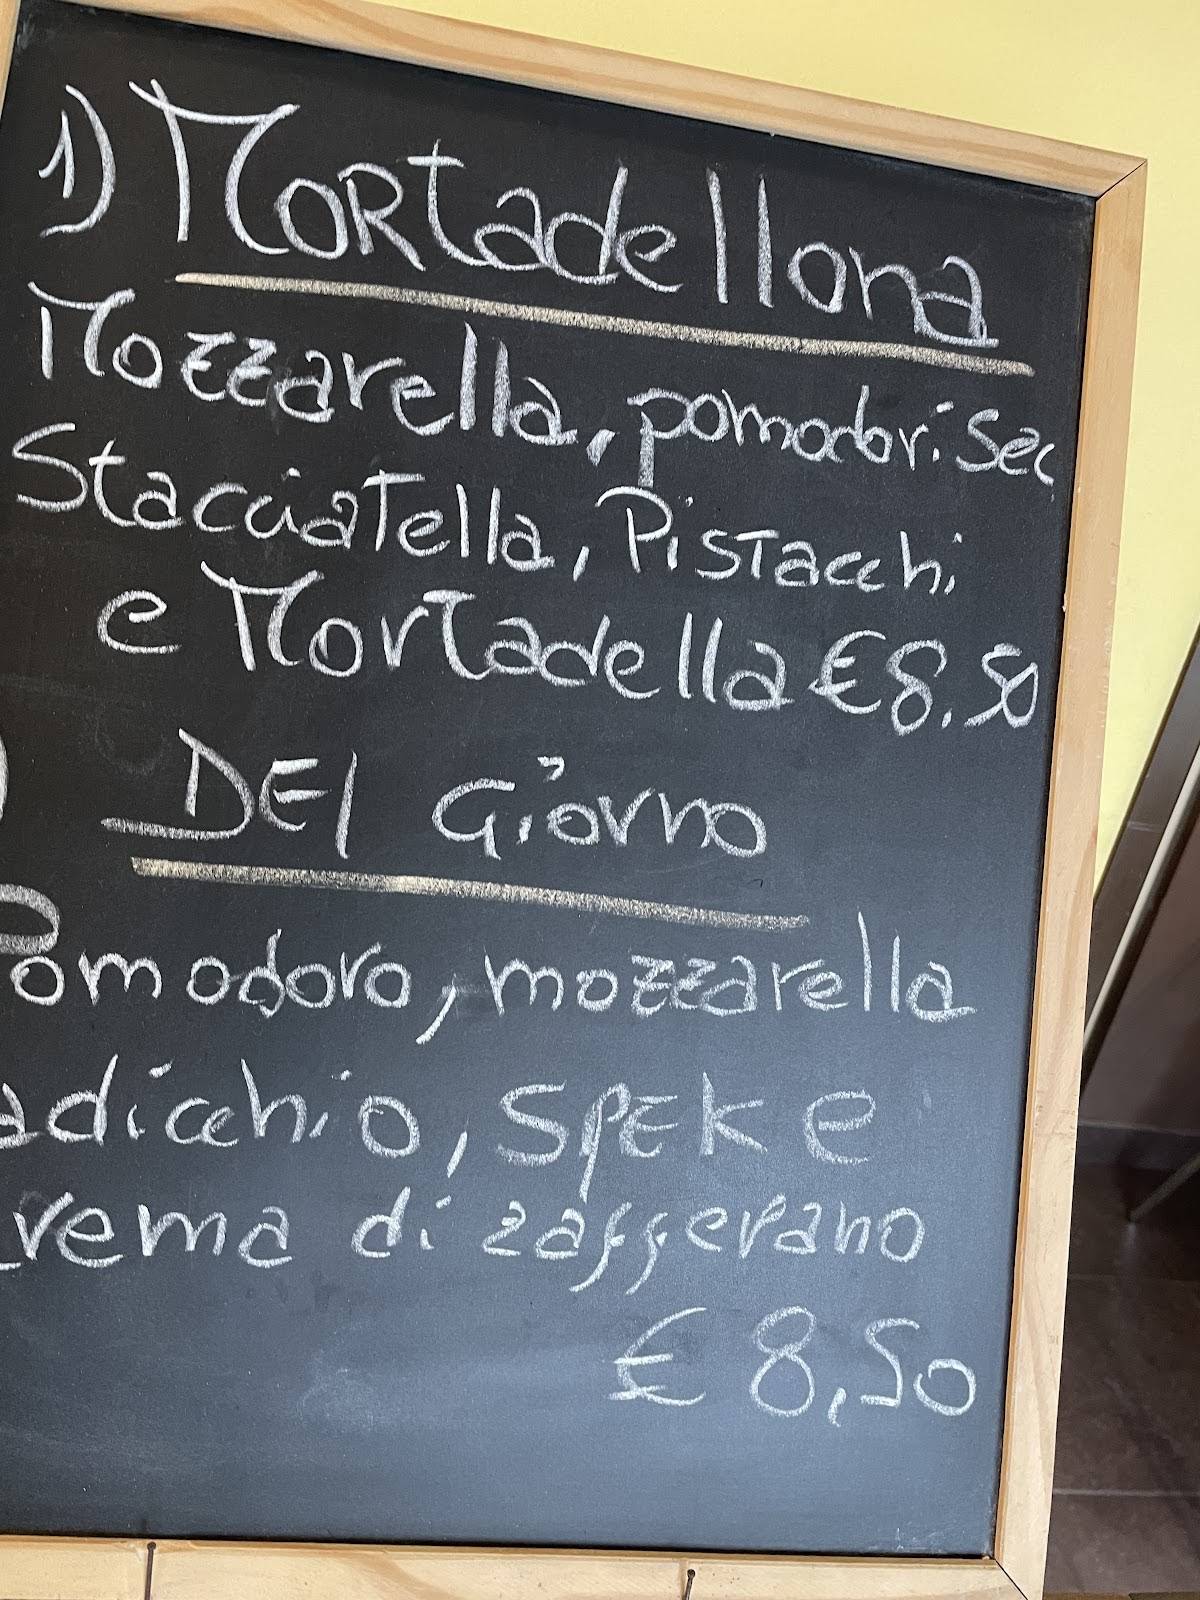 1) Mortadellona
Mozzarella, pomodori sec
Stacciatella, Pistacchi
e Mortadella € 8.50
) DEl Giorno
Pomodoro, mozzarella
adicchio, SPEK e
rema di zafferano
€ 8,50